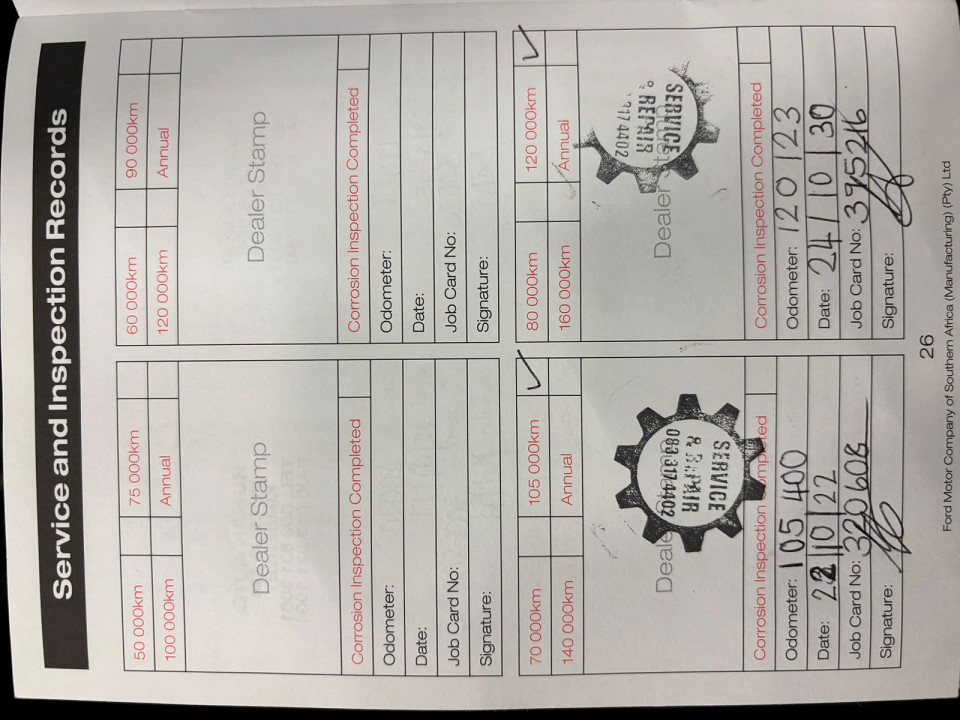 Service and Inspection Records
50 000km 75 000km
100 000km Annual
Dealer Stamp
Corrosion Inspection Completed
Odometer:
Date:
Job Card No:
Signature:
60 000km 90 000km
120 000km Annual
Dealer Stamp
Corrosion Inspection Completed
Odometer:
Date:
Job Card No:
Signature:
70 000km 105 000km ✓
140 000km Annual
SERVICE
& REPAIR
083 317 4402
Corrosion Inspection Completed
Odometer: 105 400
Date: 22/10/22
Job Card No: 320608
Signature:
80 000km 120 000km ✓
160 000km Annual
Dealer
SERVICE
REPAIR
317 4402
Corrosion Inspection Completed
Odometer: 120 123
Date: 24/10/30
Job Card No: 395246
Signature:
26
Ford Motor Company of Southern Africa (Manufacturing) (Pty) Ltd